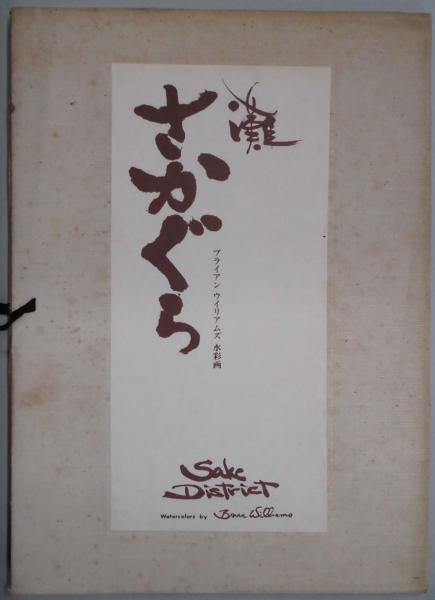 灘
さかぐら
ブライアン ウイリアムズ 水彩画
Sake
District
Watercolors by Brian Williams